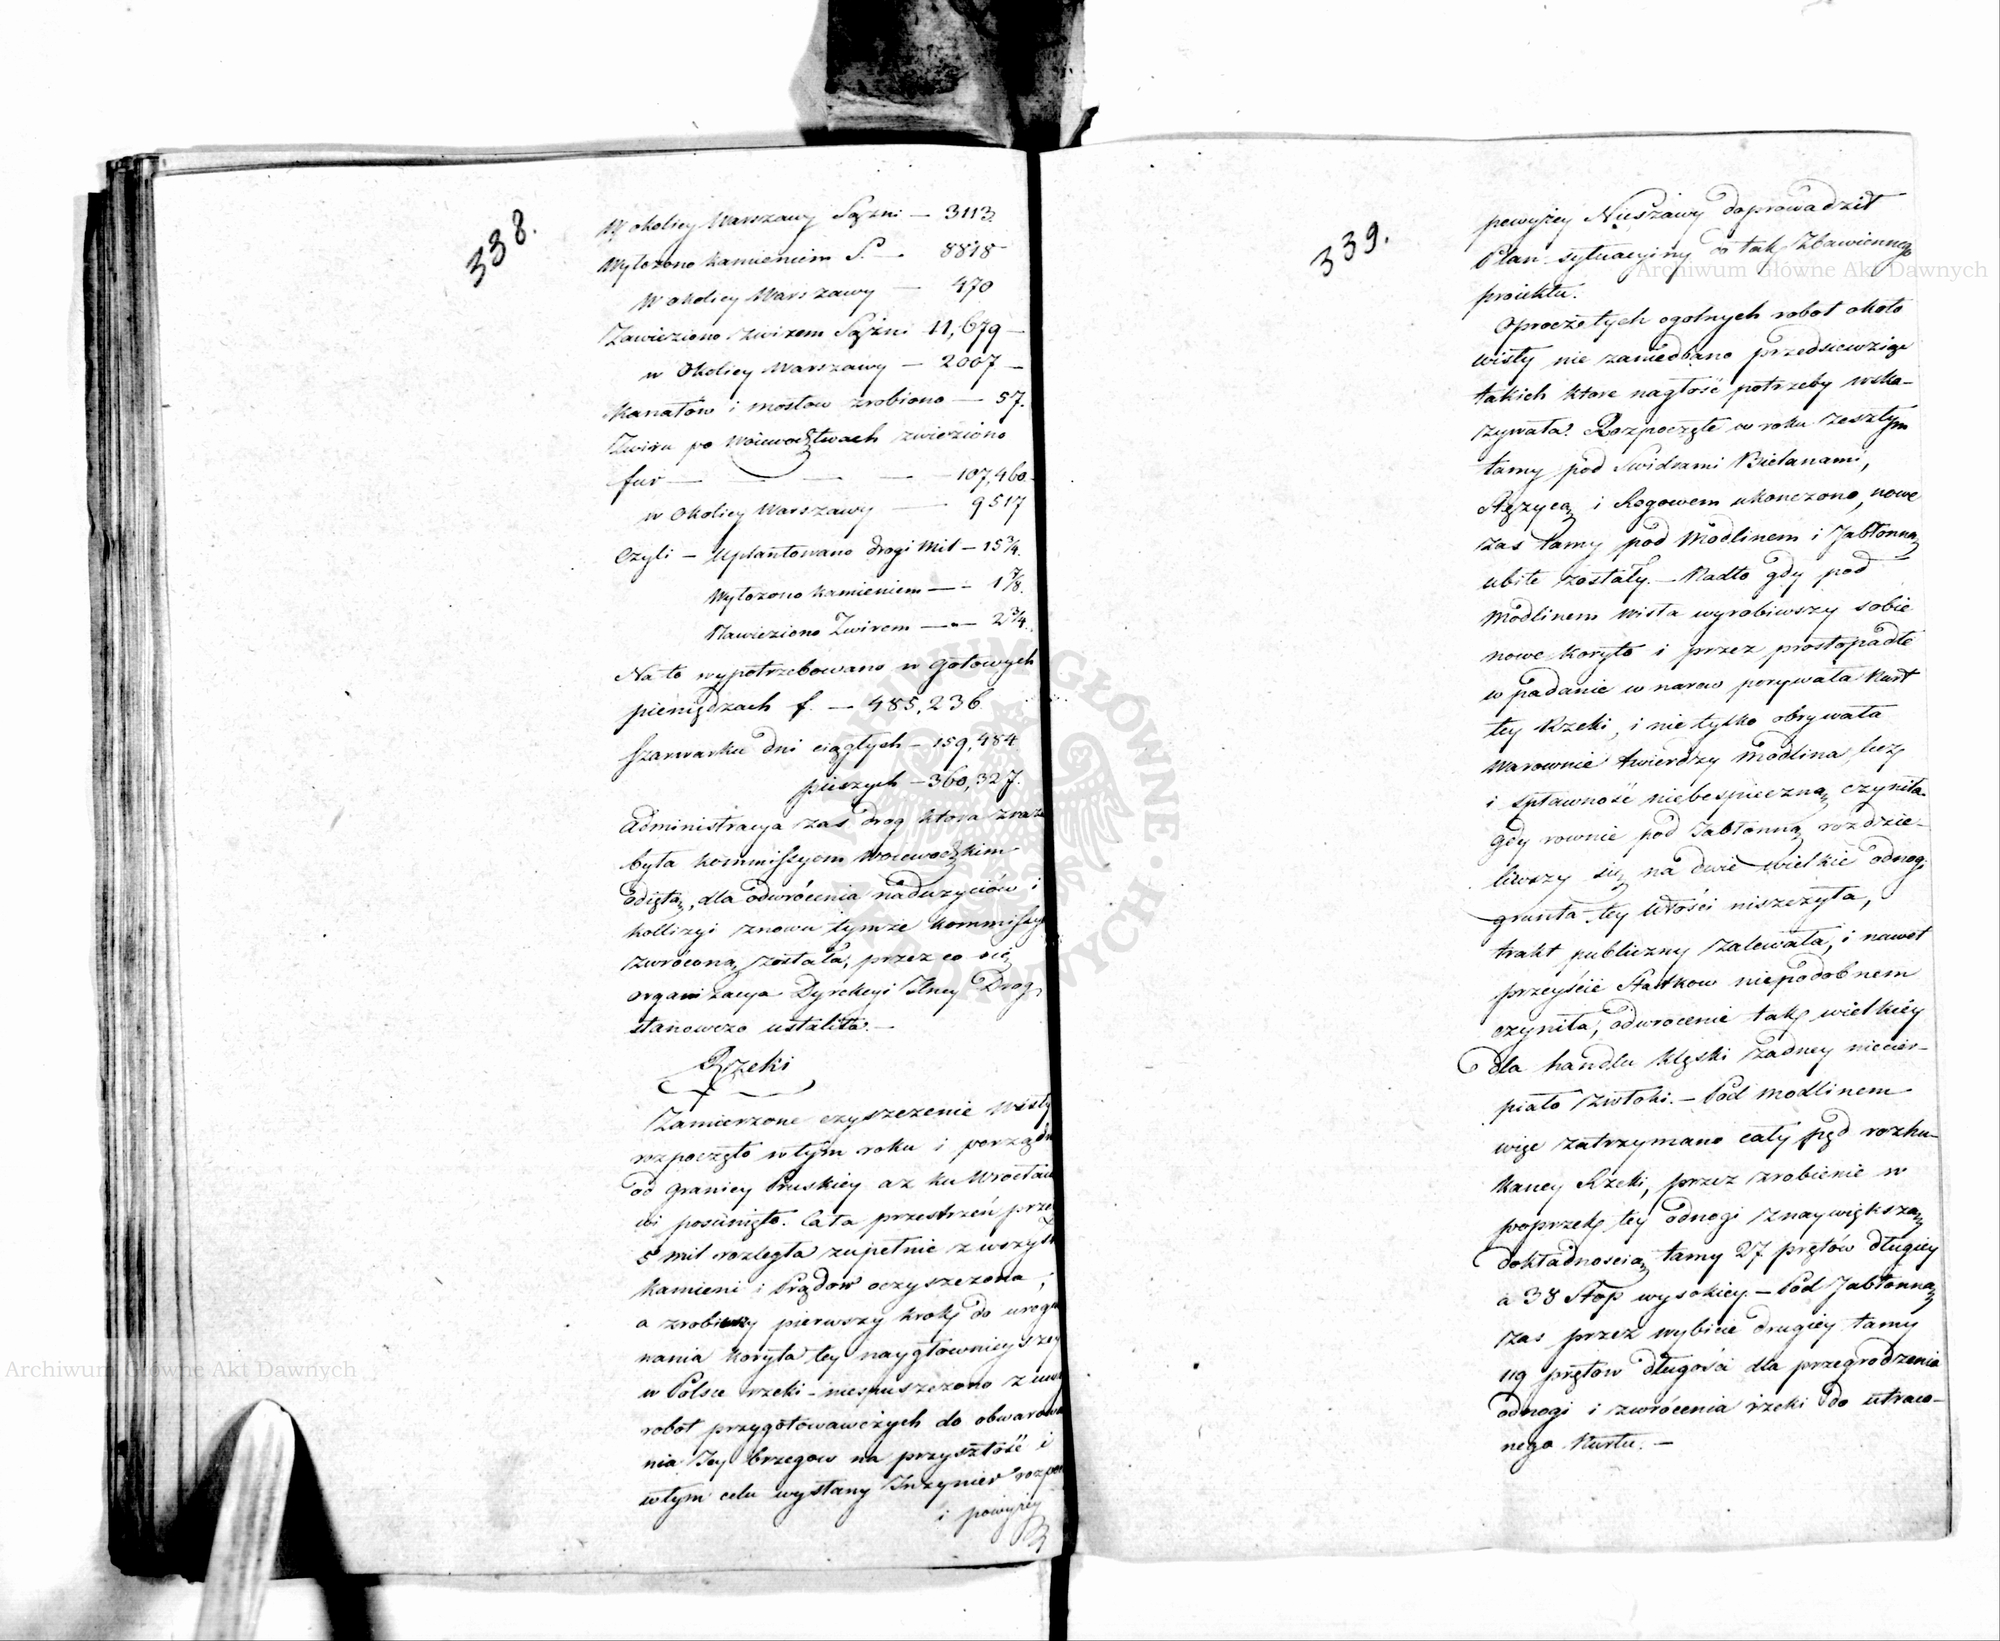 338.
W okolicy Warszawy Sążni — 3113.
Wyłożono kamieniem S. — 8818
W okolicy Warszawy — 470
Zawieziono Żwirem Sążni 11,679 —
w Okolicy Warszawy — 2007 —
Kanałów i mostow zrobiono — 57.
Żwiru po Woiewodztwach zwieziono
fur — — — — 107,460.
w Okolicy Warszawy — 9517
Czyli — Uplantowano drogi Mil — 15 3/4.
Wyłożono kamieniem — — 1 7/8.
Nawieziono Żwirem — — 2 3/4.
Na to wypotrzebowano w gotowych
pieniędzach f. — 485,236
Szarwarku dni ciągłych — 159,484
pieszych — 360,327.
Administracya zaś drog ktora zrazu
była kommissyom Woiewodzkim
odiętą, dla odwrócenia nadużyciów i
kollizyi znowu tymże kommissyom
zwróconą została, przez co się
organizacya Dyrekcyi Jlney Drog
stanowczo ustaliła. —
Rzeki
Zamierzone czyszczenie Wisły
rozpoczęto w tym roku i porządnie
od granicy Pruskiey aż ku Wrocław
wi posunięto. Cała przestrzeń przez
5 mil rozległa zupełnie z wszyst
kamieni i Prądów oczyszczona,
a zrobiwszy pierwszy krok do
nania koryta tey naygłownieyszey
w Polsce rzeki — niespuszczono z uwagi
robot przygotowawczych do obwarowa
nia Jey brzegow na przyszłość i
w tym celu wysłany Inżynier
i powyżey
339.
powyżey Nieszawy doprowadził
Plan sytuacyiny do tak Zbawiennego
proiektu.
Oprocz tych ogolnych robot około
Wisły nie zaniedbano przedsiewziąć
takich ktore nagłość potrzeby wska-
zywała. Rozpoczęte w roku zeszłym
tamy pod Swidrami Bielanami,
Stężycą i Rogowem ukonczono, nowe
zaś tamy pod Modlinem i Jabłonną
ubite zostały. — Nadto gdy pod
Modlinem Wisła wyrobiwszy sobie
nowe koryto i przez prostopadłe
wpadanie w narew porywała Nurt
tey Rzeki, i nie tylko obrywała
Warownie twierdzy Modlina, lecz
i spławność niebespieczną czyniła.
gdy rownie pod Jabłonną rozdzie-
liwszy się na dwie wielkie odnogi
grunta tey Włości niszczyła,
trakt publiczny zalewała, i nawet
przeyście Statkow niepodobnem
czyniła, odwrocenie tak wielkiey
dla handlu klęski żadney niecier-
piało zwłoki. — Pod Modlinem
więc zatrzymano cały pęd rozhu-
kaney Rzeki, przez zrobienie w
poprzek tey odnogi z naywiększą
dokładnoscią tamy 27 prętów długiey
a 38 Stop wysokiey. — Pod Jabłonną
zaś przez wybicie drugiey tamy
119 prętow długości dla przegrodzenia
odnogi i zwrócenia rzeki do utraco-
nego Nurtu. —
Archiwum Główne Akt Dawnych
Archiwum Główne Akt Dawnych
ARCHIWUM GŁÓWNE AKT DAWNYCH